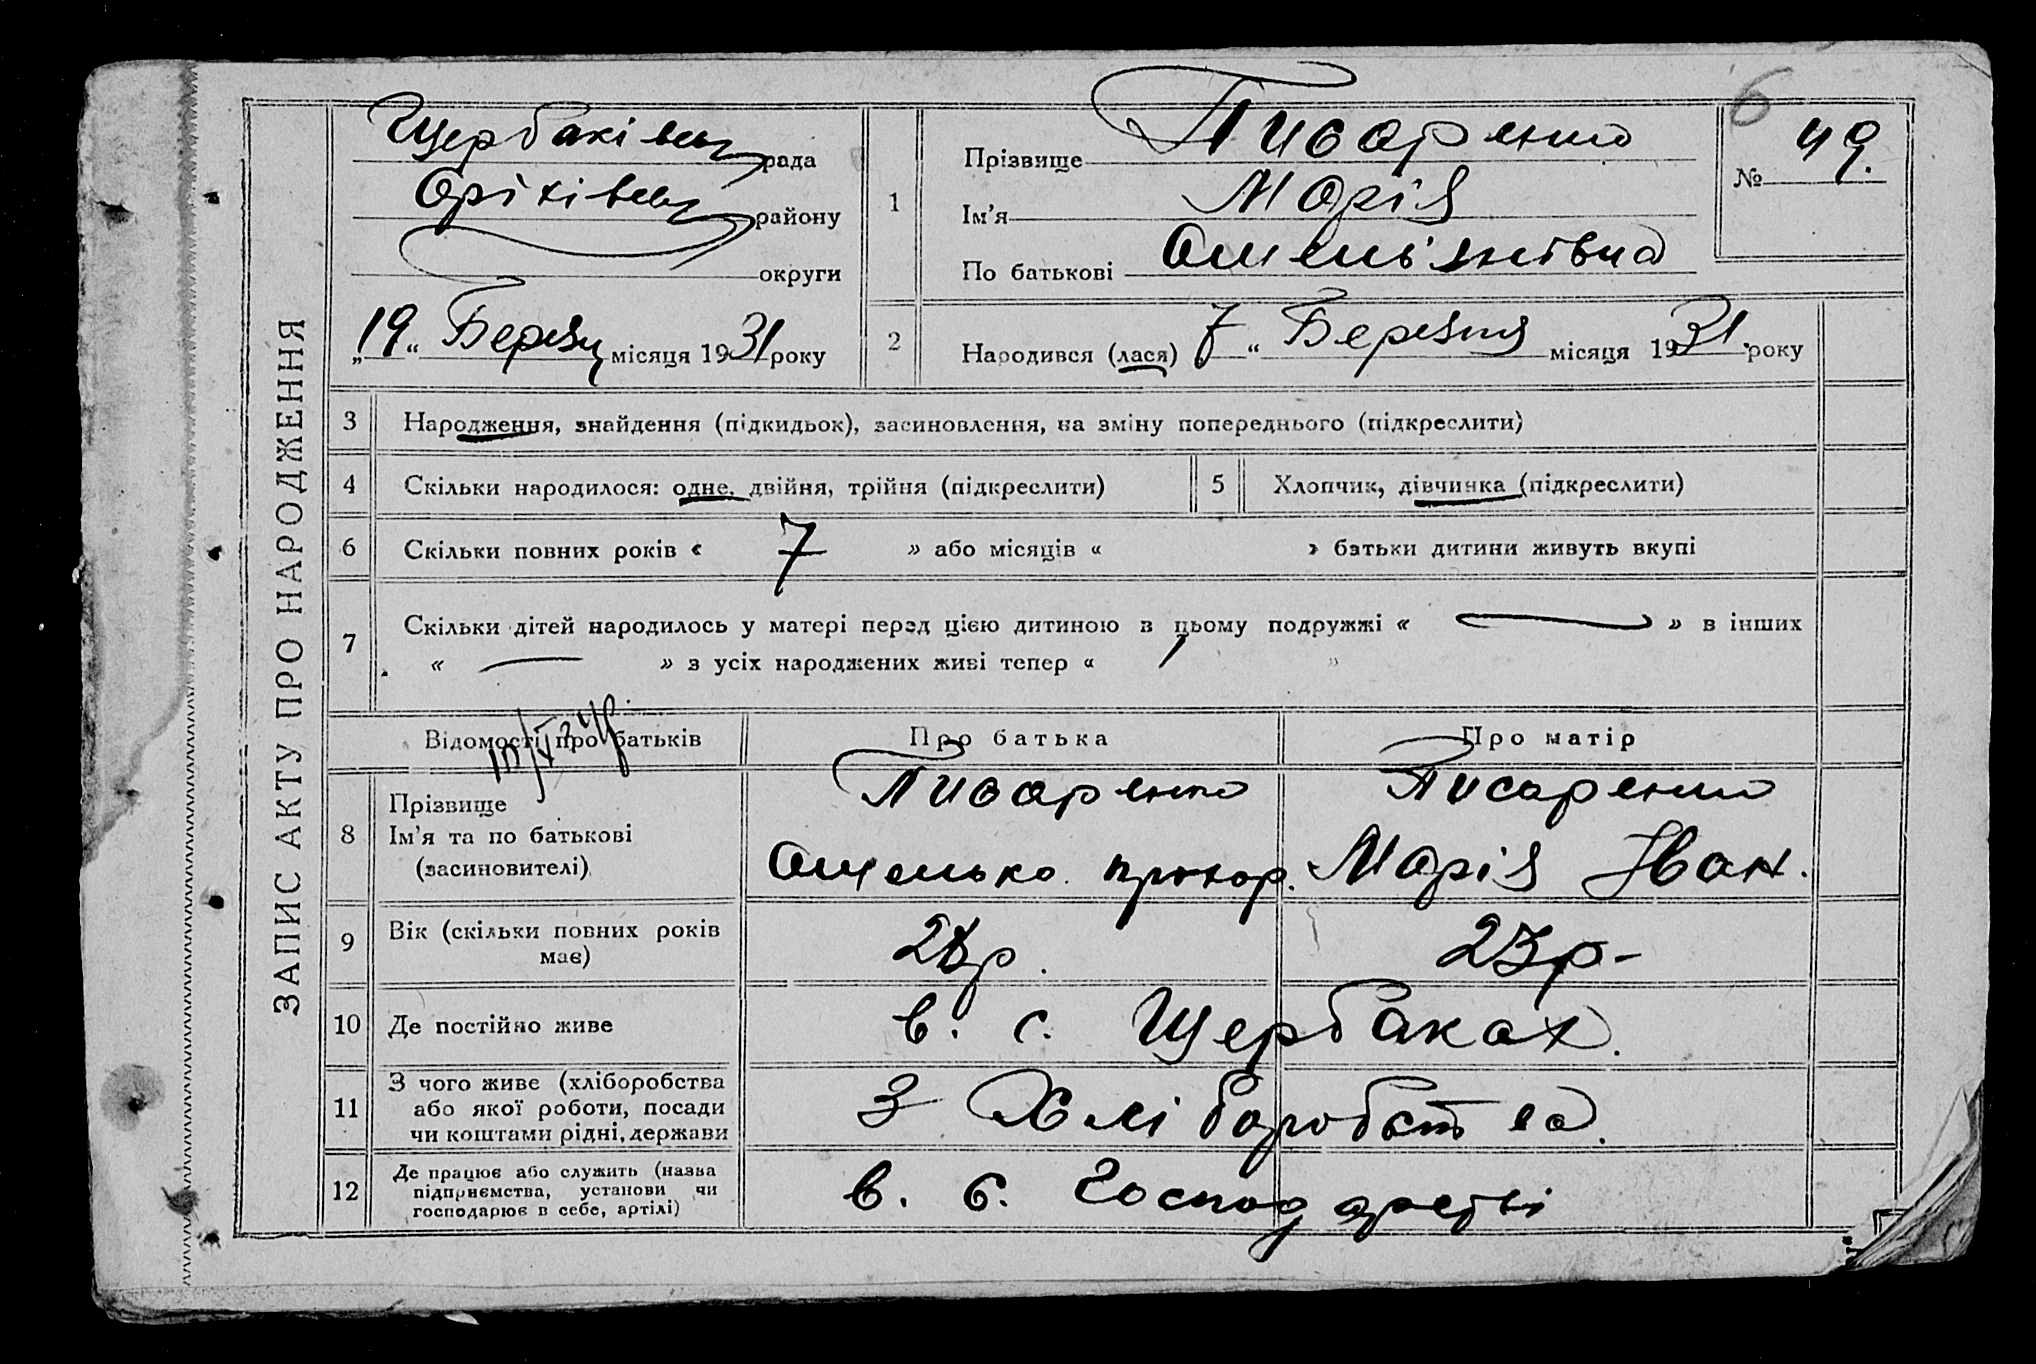 6
ЗАПИС АКТУ ПРО НАРОДЖЕННЯ
Щербаківськ рада
Оріхівськ району
округи
„19“ Березн місяця 1931 року
1
Прізвище Писаренко
Ім'я Марія
По батькові Омельянівна
№ 49.
2
Народився (лася) 7 “ Березня місяця 1931. року
3 Народження, знайдення (підкидьок), засиновлення, на зміну попереднього (підкреслити)
4 Скільки народилося: одне, двійня, трійня (підкреслити)
5 Хлопчик, дівчинка (підкреслити)
6 Скільки повних років « 7 » або місяців « » батьки дитини живуть вкупі
7 Скільки дітей народилось у матері перед цією дитиною в цьому подружжі « — » в інших
« — » з усіх народжених живі тепер « "
Відомості про батьків
Про батька
Про матір
8 Прізвище
Ім'я та по батькові
(засиновителі)
Писаренко
Омелько Прокор.
Писаренко
Марія Іван.
9 Вік (скільки повних років
має)
р.
23р-
10 Де постійно живе
в. с. Щербаках.
11 З чого живе (хліборобства
або якої роботи, посади
чи коштами рідні, держави
З Хліборобства.
12 Де працює або служить (назва
підприємства, установи чи
господарює в себе, артілі)
в. с. Господарстві